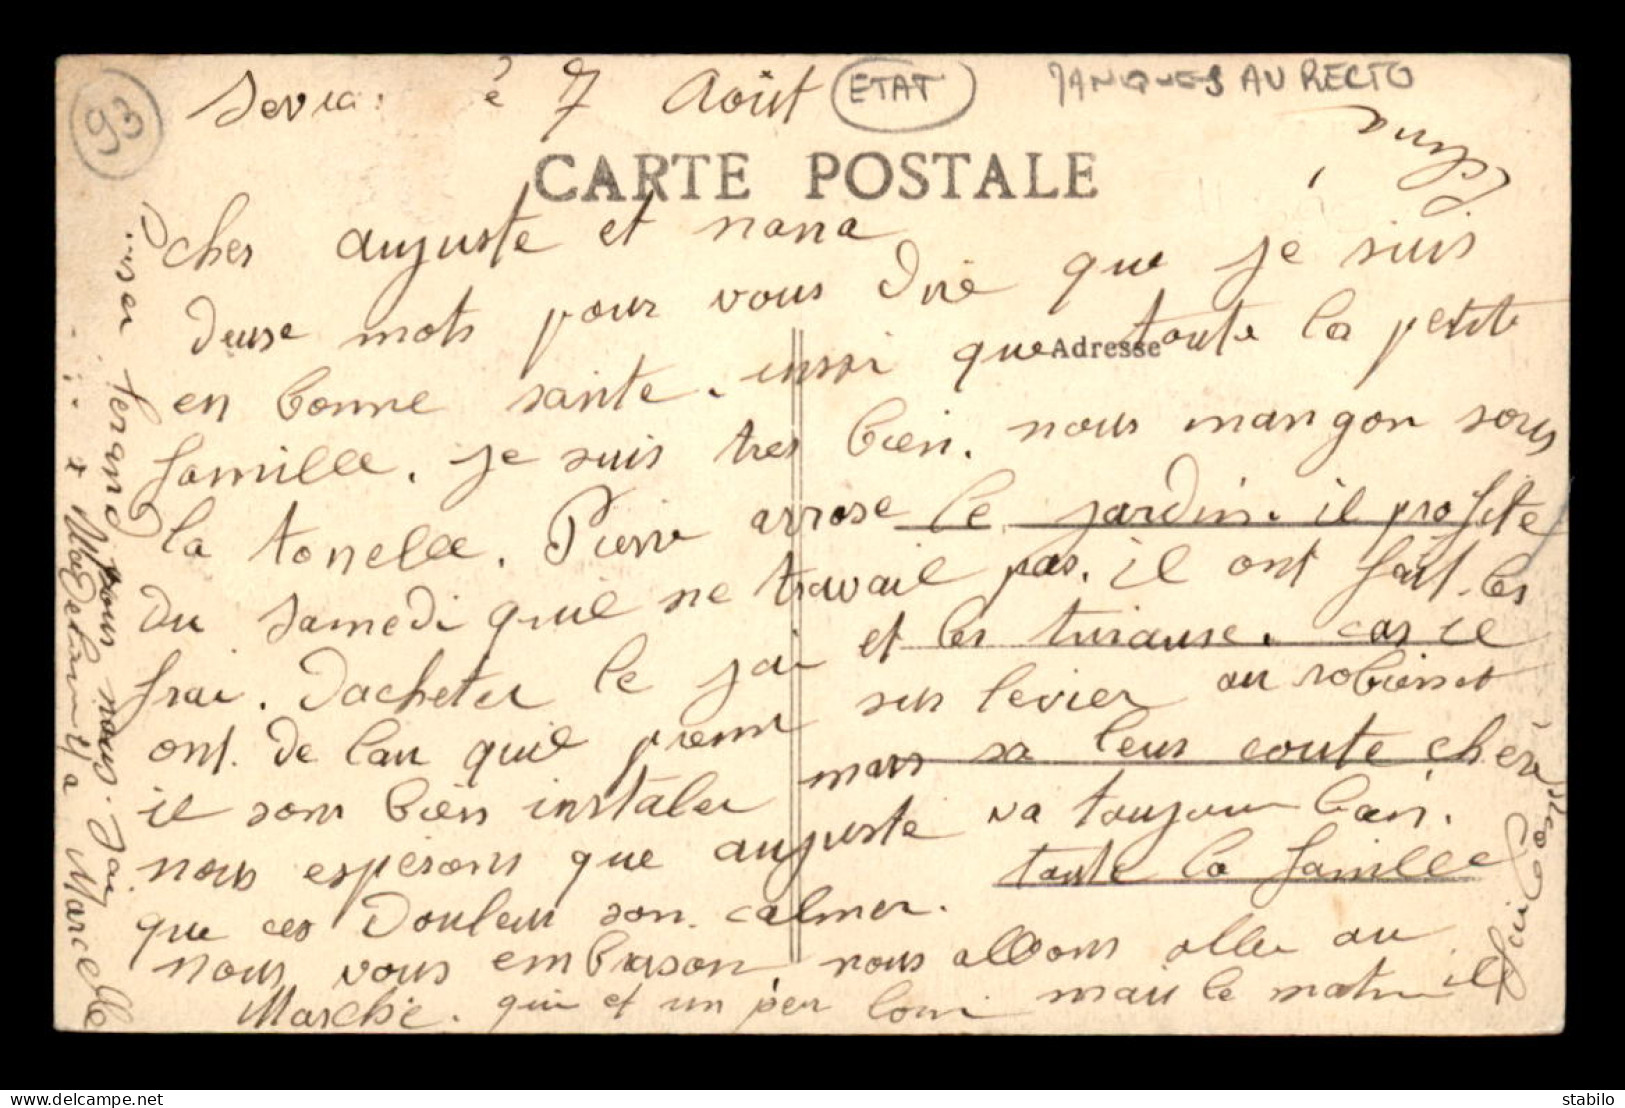 93
7 Août
ETAT
MANQUES AU RECTO
CARTE POSTALE
cher auguste et nana
deuse mots pour vous dire que je suis
en bonne sante. inssi que toute la petite
Adresse
famille. je suis tres bien. nous mangon sous
la tonelle. Pierre arrose le jardin. il profite
du samedi quil ne travail pas. il ont fait les
frai. dacheter le jai et les tuiause. car il
ont de lau quil prenne sur levier au robienet
il son bien instaler mais sa leur coute cher
nous esperons que auguste va toujour bien.
que ces douleur son calmer. toute la famille
nous vous embrason. nous allons aller au
Marche. qui et un peu loin mais le matin il
fait bon
fernand pour nous. Jai
Marcelle
delcampe.net
stabilo